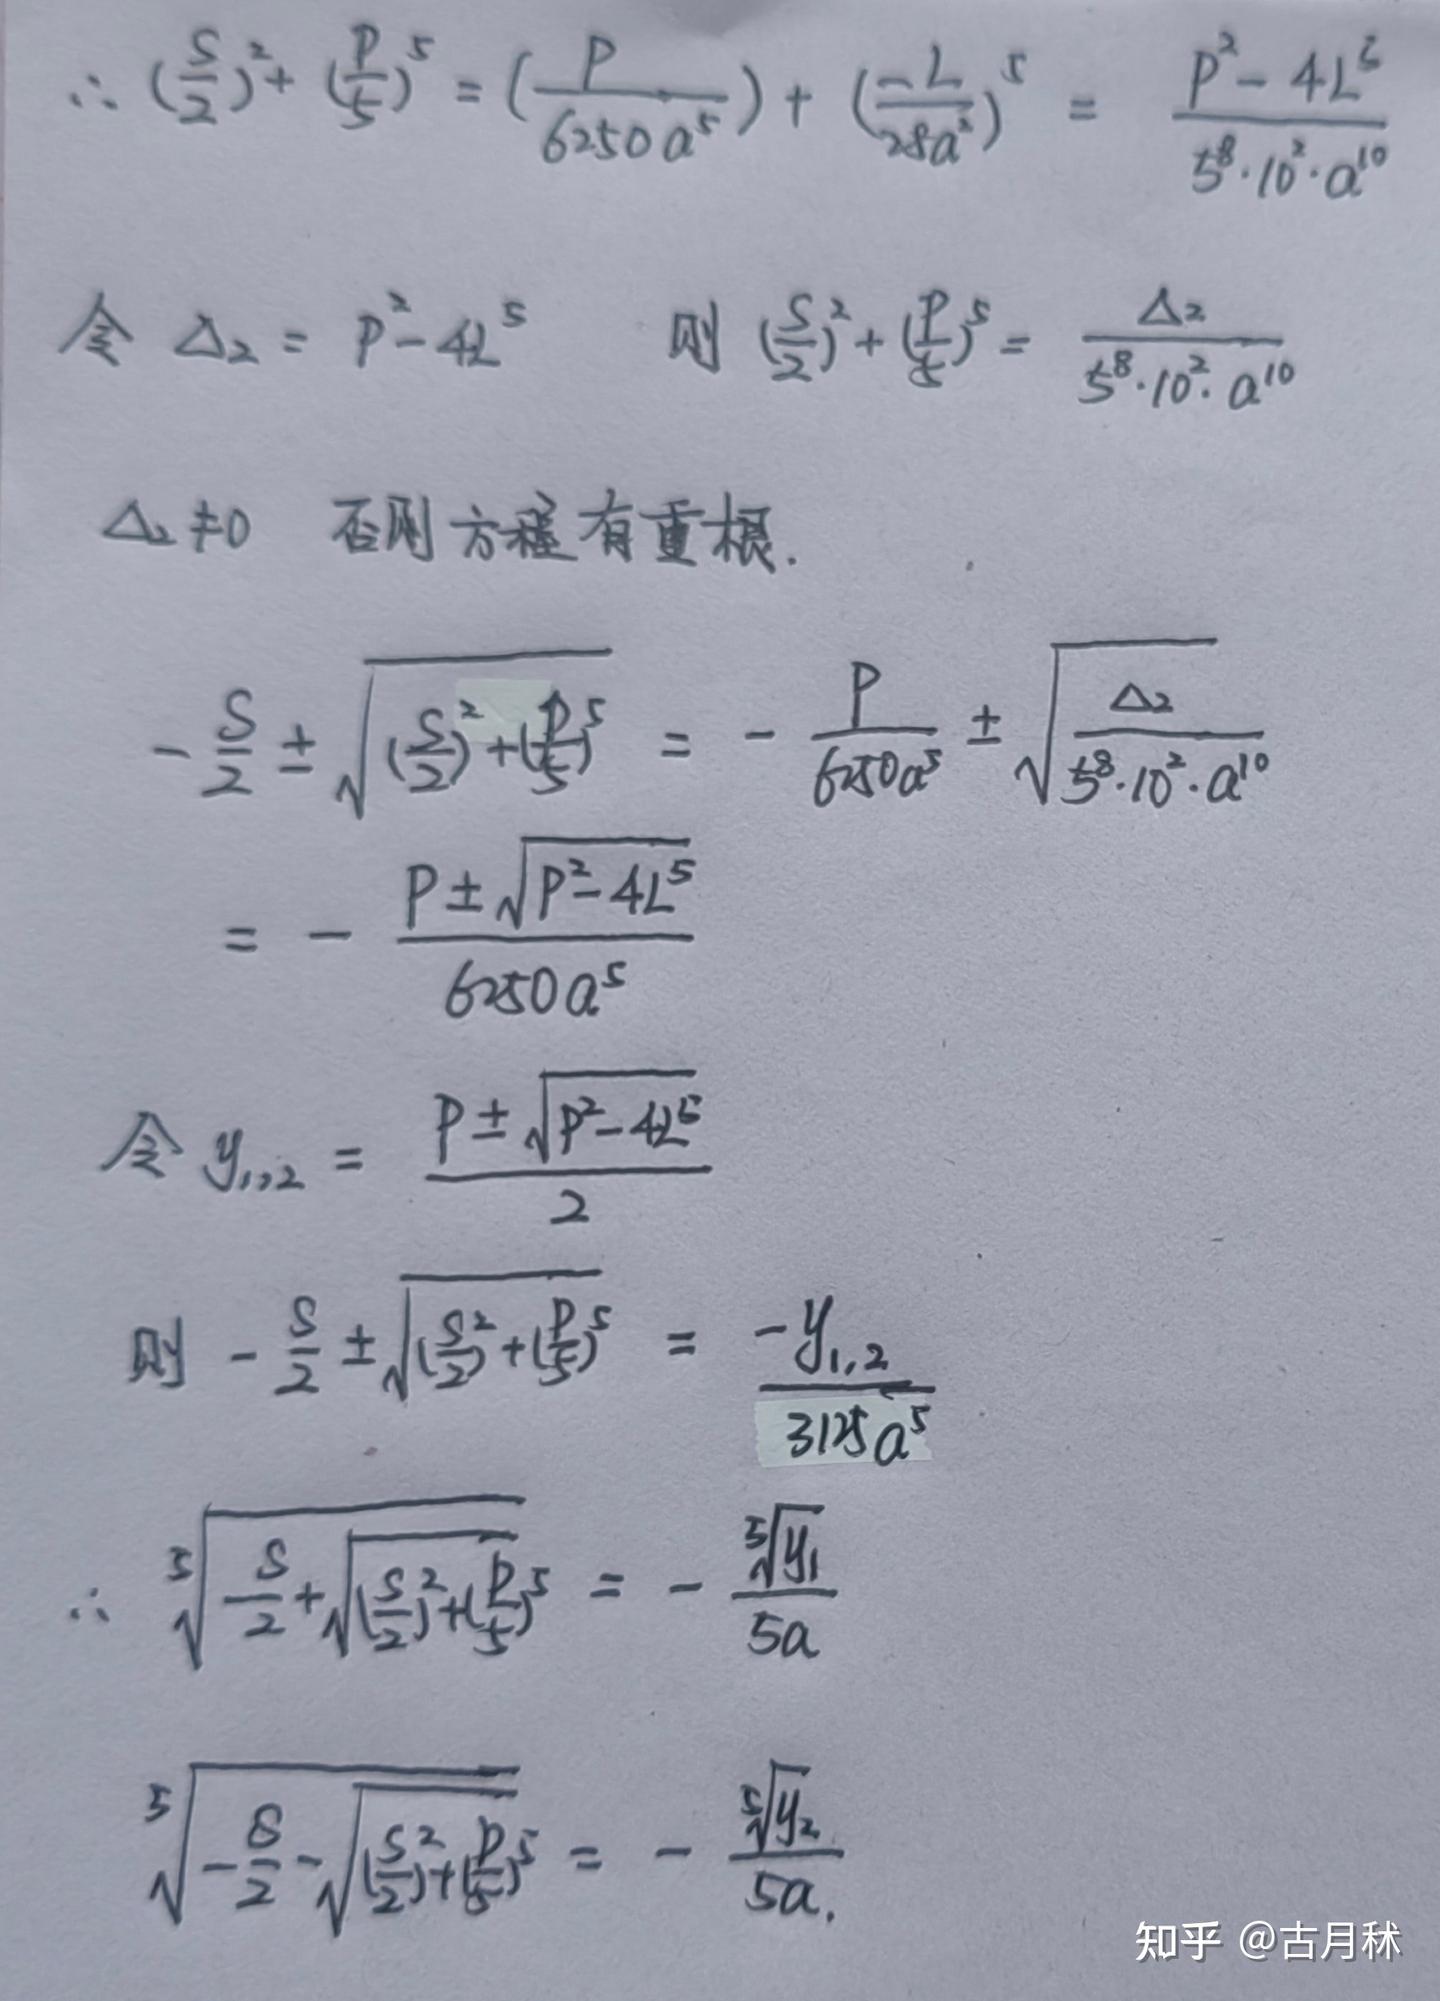 ∴ (S/2)² + (P/5)⁵ = (P/6250a⁵) + (-L/25a²)⁵ = (P² - 4L⁵)/(5⁸·10²·a¹⁰)
令 Δ₂ = P² - 4L⁵ 则 (S/2)² + (P/5)⁵ = Δ₂/(5⁸·10²·a¹⁰)
Δ₂ ≠ 0 否则方程有重根.
-S/2 ± √((S/2)² + (P/5)⁵) = -P/(6250a⁵) ± √(Δ₂/(5⁸·10²·a¹⁰))
= -(P ± √(P² - 4L⁵))/(6250a⁵)
令 y₁,₂ = (P ± √(P² - 4L⁵))/2
则 -S/2 ± √((S/2)² + (P/5)⁵) = -y₁,₂/(3125a⁵)
∴ ⁵√(-S/2 + √((S/2)² + (P/5)⁵)) = -⁵√y₁/(5a)
⁵√(-S/2 - √((S/2)² + (P/5)⁵)) = -⁵√y₂/(5a).
知乎 @古月秫